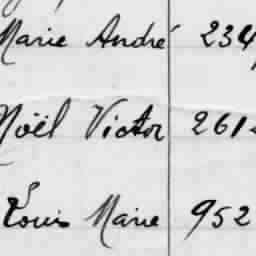 Marie André 234
Noël Victor 261
Louis Marie 952